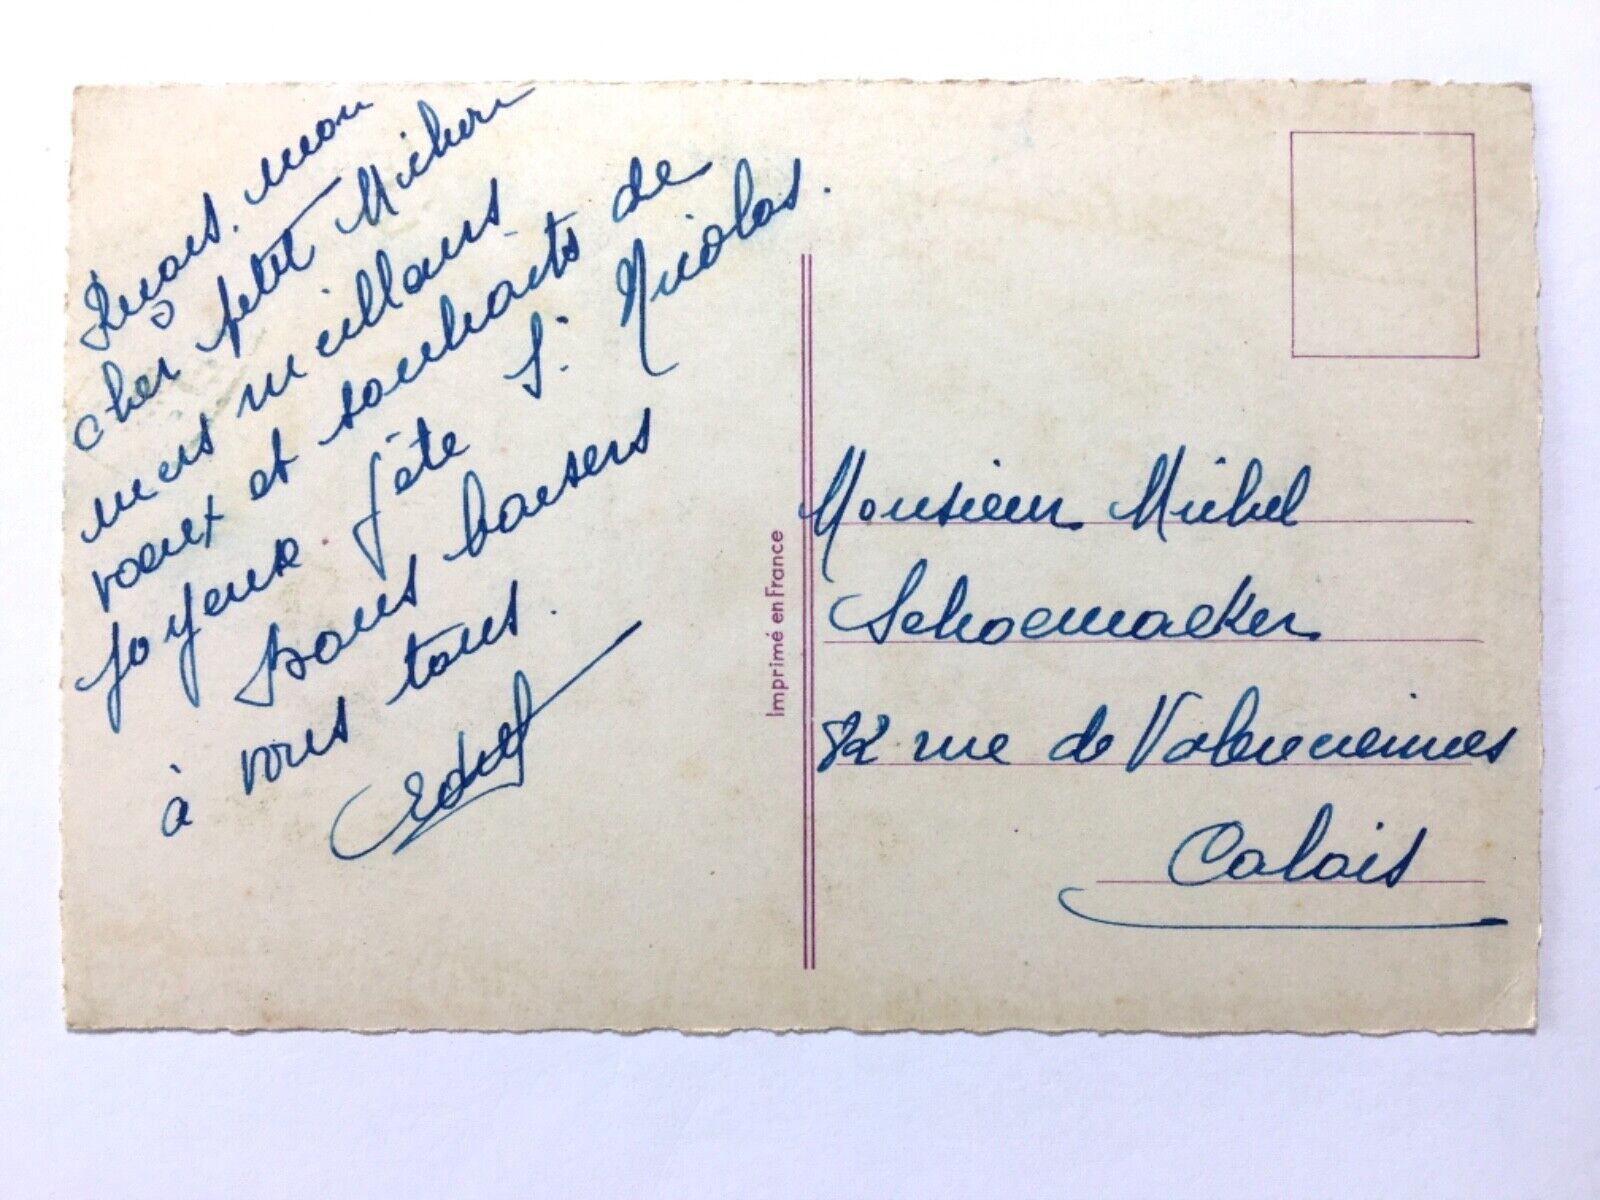 Reçois, mon
cher petit
mes meilleurs
vœux et souhaits de
joyeuse fête St Nicolas.
Bons baisers
à vous tous.
Imprimé en France
Monsieur Michel
Schoemacker
82 rue de Valenciennes
Calais